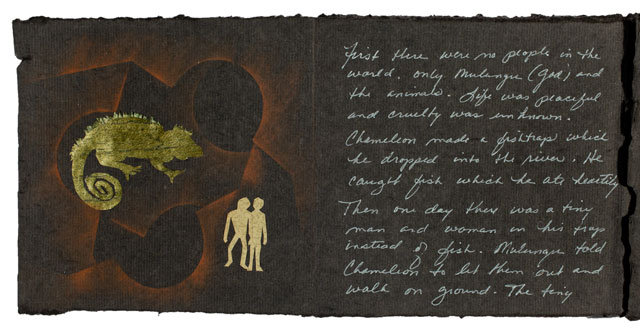 First there were no people in the
world. Only Mulungu (God) and
the animals. Life was peaceful
and cruelty was unknown.
Chameleon made a fishtrap which
he dropped into the river. He
caught fish which he ate heartily
Then one day there was a tiny
man and woman in his trap
instead of fish. Mulungu told
Chameleon to let them out and
walk on ground. The tiny